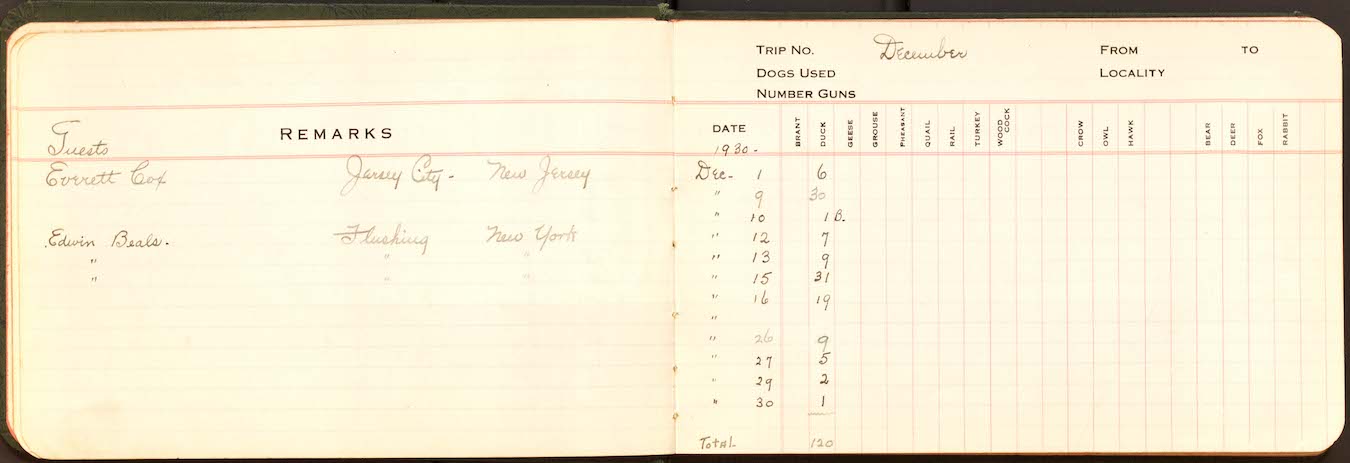 REMARKS
Guests
Everett Cox Jarsey City- New Jersey
Edwin Beals. Flushing New York
" " "
" " "
TRIP NO. December FROM TO
DOGS USED LOCALITY
NUMBER GUNS
DATE BRANT DUCK GEESE GROUSE PHEASANT QUAIL RAIL TURKEY WOOD COCK CROW OWL HAWK BEAR DEER FOX RABBIT
1930-
Dec- 1 6
" 9 30
" 10 1 B.
" 12 7
" 13 9
" 15 31
" 16 19
"
" 26 9
" 27 5
" 29 2
" 30 1
Total 120